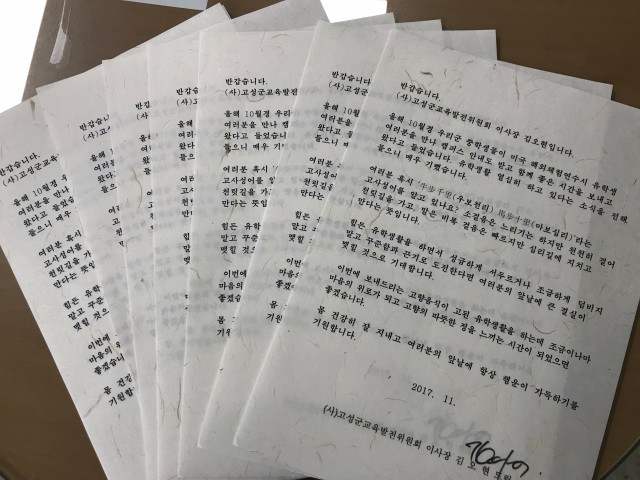 반갑습니다.
(사)고성군교육발전위원회 이사장 김오현입니다.
올해 10월경 우리군 중학생들이 미국 해외체험연수시 유학생
여러분을 만나 캠퍼스 안내도 받고 함께 좋은 시간을 보내고
왔다고 들었습니다. 유학생활 열심히 하고 있다는 소식을 전해
들으니 매우 기뻤습니다.
여러분 혹시 '牛步千里(우보천리) 馬步十里(마보십리)'라는
고사성어를 알고 있나요? 소걸음은 느리기는 하지만 천천히 걸어
천릿길을 가고 말은 비록 걸음은 빠르지만 십리길에 지치고
만다는 뜻입니다.
힘든 유학생활을 하면서 성급하게 서두르거나 조급하게 덤비지
말고 꾸준함과 끈기로 도전한다면 여러분의 앞날에 큰 결실이
맺힐 것으로 기대합니다.
이번에 보내드리는 고향음식이 고된 유학생활을 하는데 조금이나마
마음의 위로가 되고 고향의 따뜻한 정을 느끼는 시간이 되었으면
좋겠습니다.
몸 건강히 잘 지내고 여러분의 앞날에 항상 행운이 가득하기를
기원합니다.
2017. 11.
(사)고성군교육발전위원회 이사장 김 오 현 드림